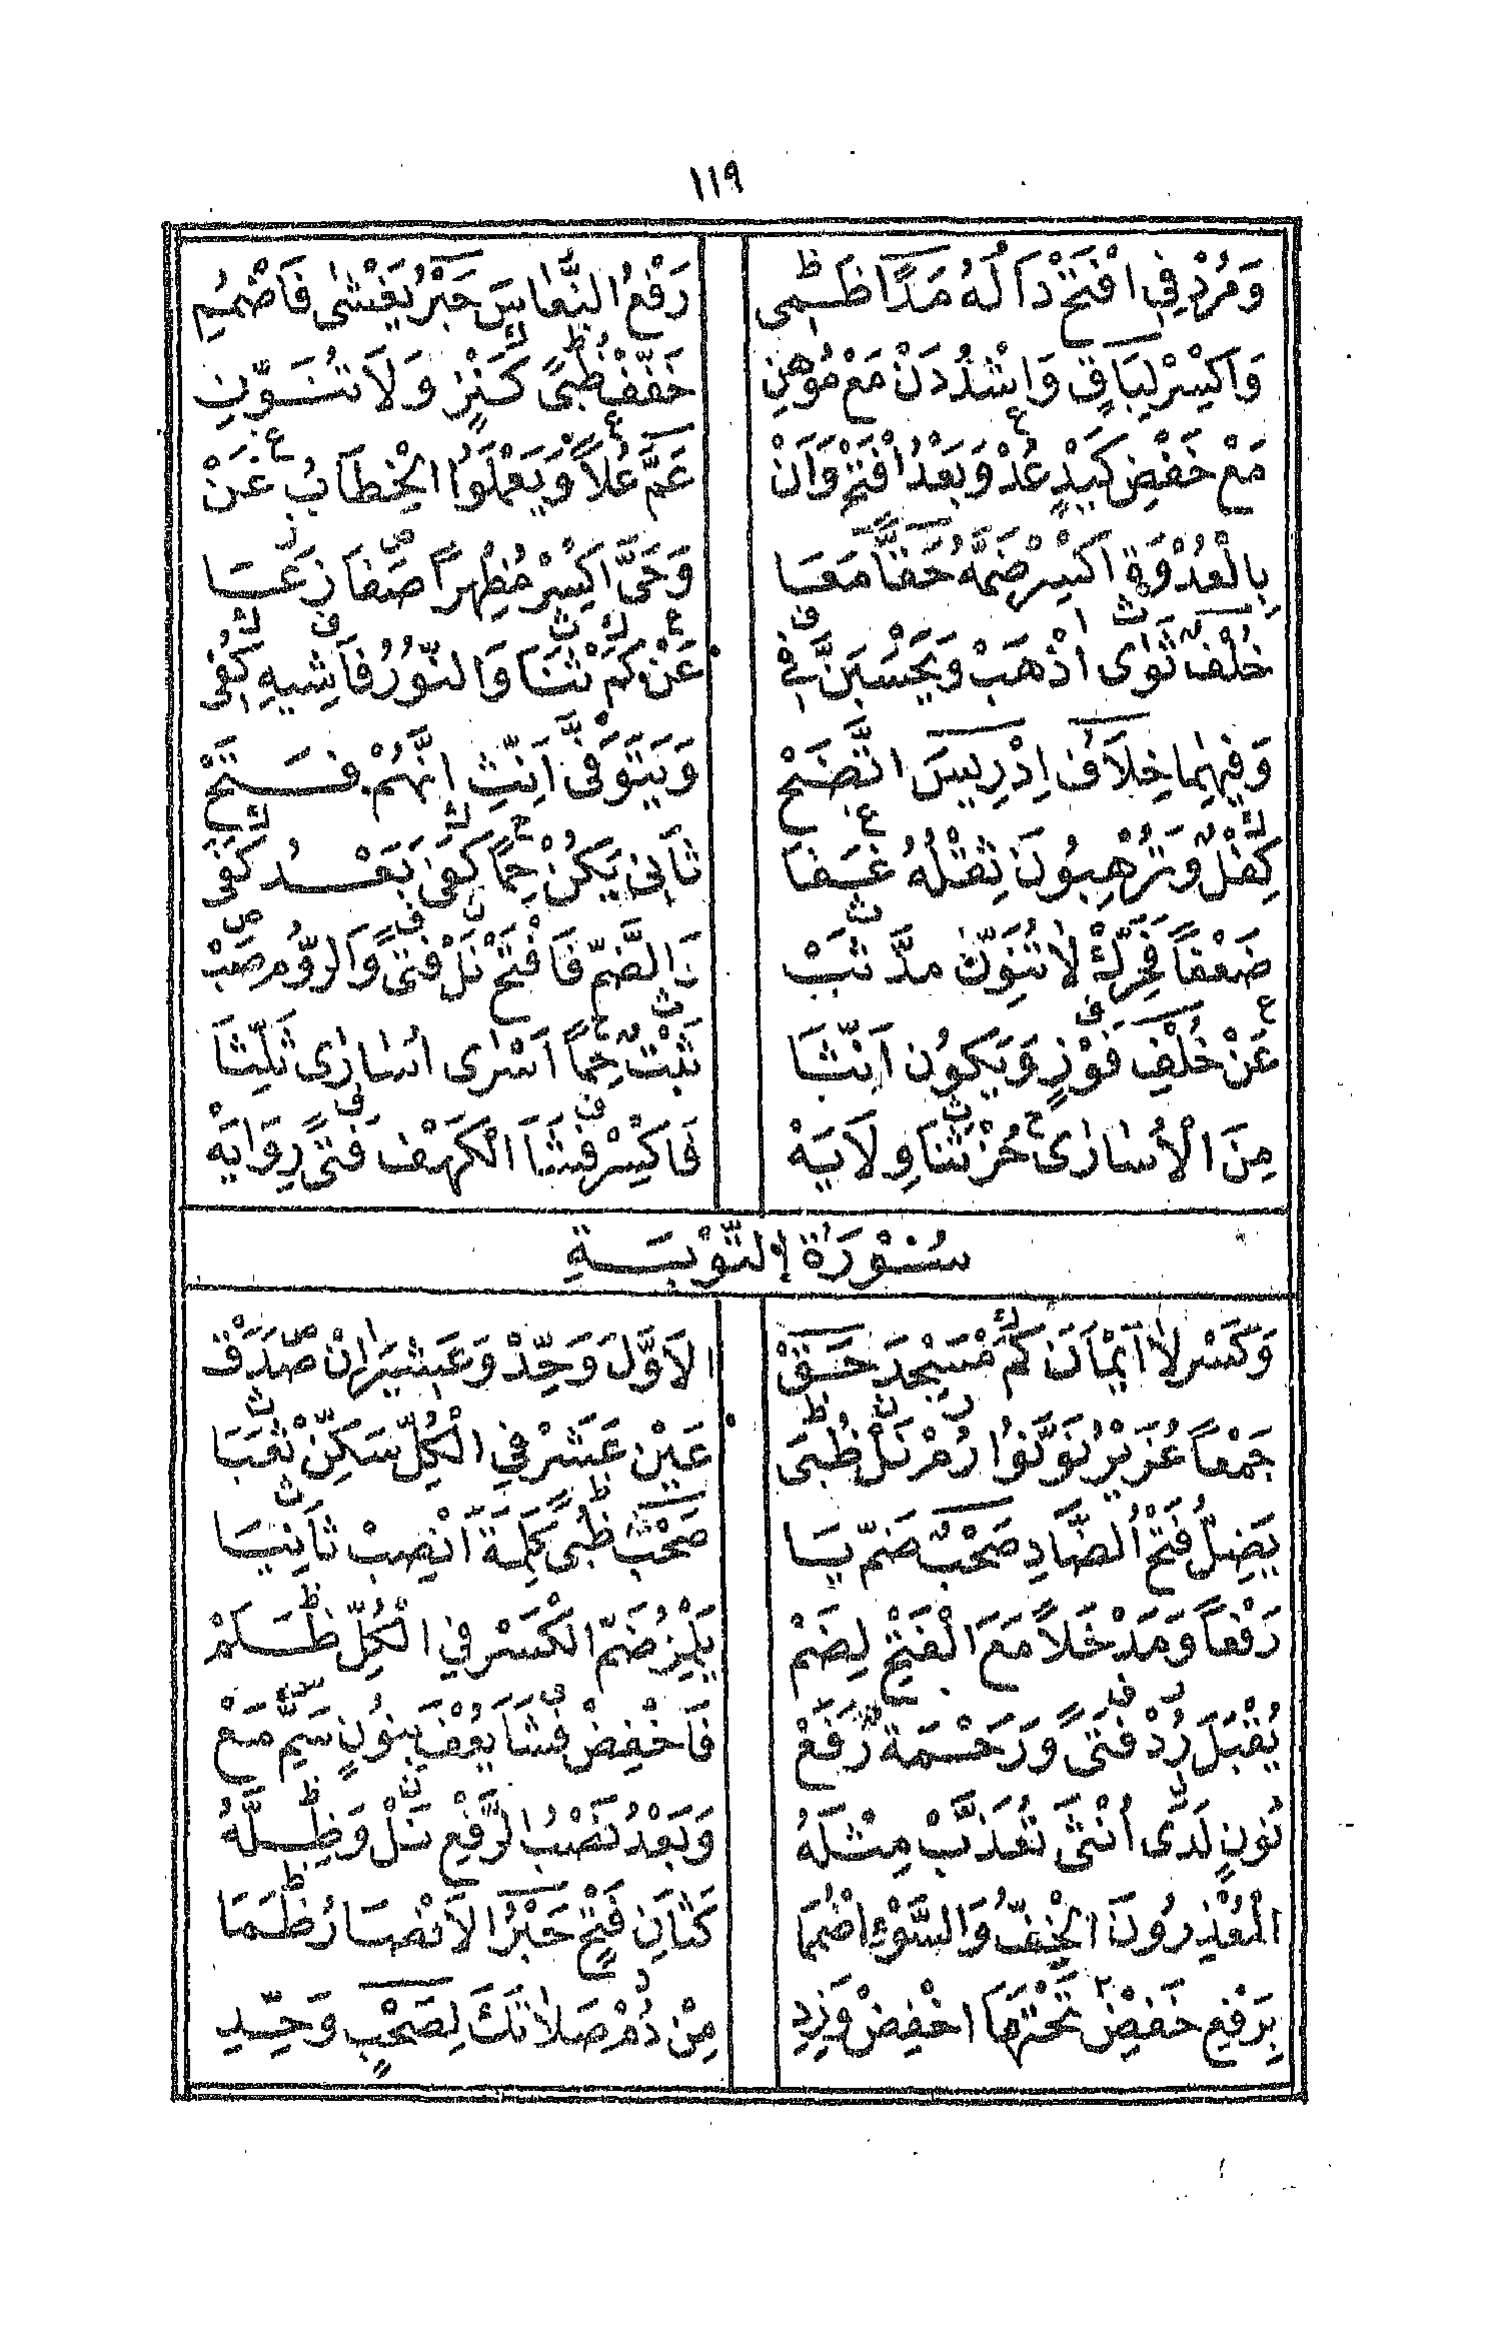 ١١٩
وَمُرْدِفِي افْتَحْ دَالَهُ مَدًّا ظَمِي رَفْعُ النُّعَاسَ حَبْرُ يَغْشَى فَاضْمُمِ
وَاكْسِرْ لِبَاقٍ وَاشْدُدَنْ مَعْ مُوهِنُ خَفِّفْ ظُبًى كَنْزٍ وَلَا تُنَوِّنِ
مَعْ خَفْضِ كَيْدٍ عُدْ وَبَعْدُ افْتَحْ وَأَنْ عَمَّ عُلاً وَيَعْمَلُوا الْخِطَابُ غَنْ
بِالْعُدْوَةِ اكْسِرْ ضَمَّهُ حَقًّا مَعَا وَحَيَّ اكْسِرْ مُظْهِرًا صَفَا زَعَا
خُلْفٌ ثَوَى اذْهَبْ وَيَحْسَبَنَّ فِي عَنْ كَمْ ثَنَا وَالنُّورُ فَاشِيهِ كُفِي
وَفِيهِمَا خِلَافُ إِدْرِيسَ اتَّضَحْ وَيَتَوَفَّى أَنِّثِ انَّهُمْ فَتَحْ
كِفْلٌ وَتُرْهِبُونَ ثِقْلُهُ غَفَا ثَانِي يَكُنْ حِمًا كَفَى بَعْدُ كَفَى
ضَعْفًا فَحَرِّكْ لَا تُنَوِّنْ مُدَّ ثَبْ وَالضَّمَّ فَافْتَحْ نَلْ فَتًى وَالرُّومُ صَبْ
عَنْ خُلْفِ فَوْزٍ وَيَكُونَ أَنِّثَا ثَبْتٌ حِمًا أَسْرَى أُسَارَى ثَلِّثَا
مِنَ الْأُسَارَى حُزْ ثَنَا وِلَايَهْ فَاكْسِرْ فَشَا الْكَهْفَ فَتًى رِوَايَهْ
سُورَةُ التَّوْبَةِ
وَكَسْرُ لَا أَيْمَانَ كَمْ مَسْجِدَ حَقْ الْأَوَّلَ وَحِّدْ وَعَشِيرَاتُ صَدَقْ
جَمْعًا عُزَيْرُ نَوِّنُوا رُمْ نَلْ ظُبَى عَيْنَ عَشَرْ فِي الْكُلِّ سَكِّنْ ثَغَبَا
يَضِلُّ فَتْحُ الضَّادِ صَحْبٌ ضَمُّ يَا صَحْبٌ ظُبًى كَلِمَةَ انْصِبْ ثَانِيَا
رَفْعًا وَمَدْخَلًا مَعَ الْفَتْحِ لِضَمْ يَلْمِزُ ضَمُّ الْكَسْرِ فِي الْكُلِّ ظَلَمْ
يُقْبَلَ رُدْ فَتًى وَرَحْمَةٌ رَفَعْ فَاخْفِضْ فَشَا يُعْفَ بِنُونٍ سَمِّ مَعْ
نُونٍ لَدَى أُنْثَى تُعَذَّبْ مِثْلَهُ وَبَعْدُ نَصْبُ الرَّفْعِ نَلْ وَظِلُّهُ
الْمُعْذِرُونَ الْخِفُّ وَالسَّوْءِ اضْمُمَا كَثَانِ فَتْحٍ حَبْرُ الْأَنْصَارُ ظَمَا
بِرَفْعِ خَفْضٍ تَحْتَهَا اخْفِضْ وَزِدِ مِنْ دُمْ صَلَاتَكَ لِصَحْبٍ وَحِّدِ